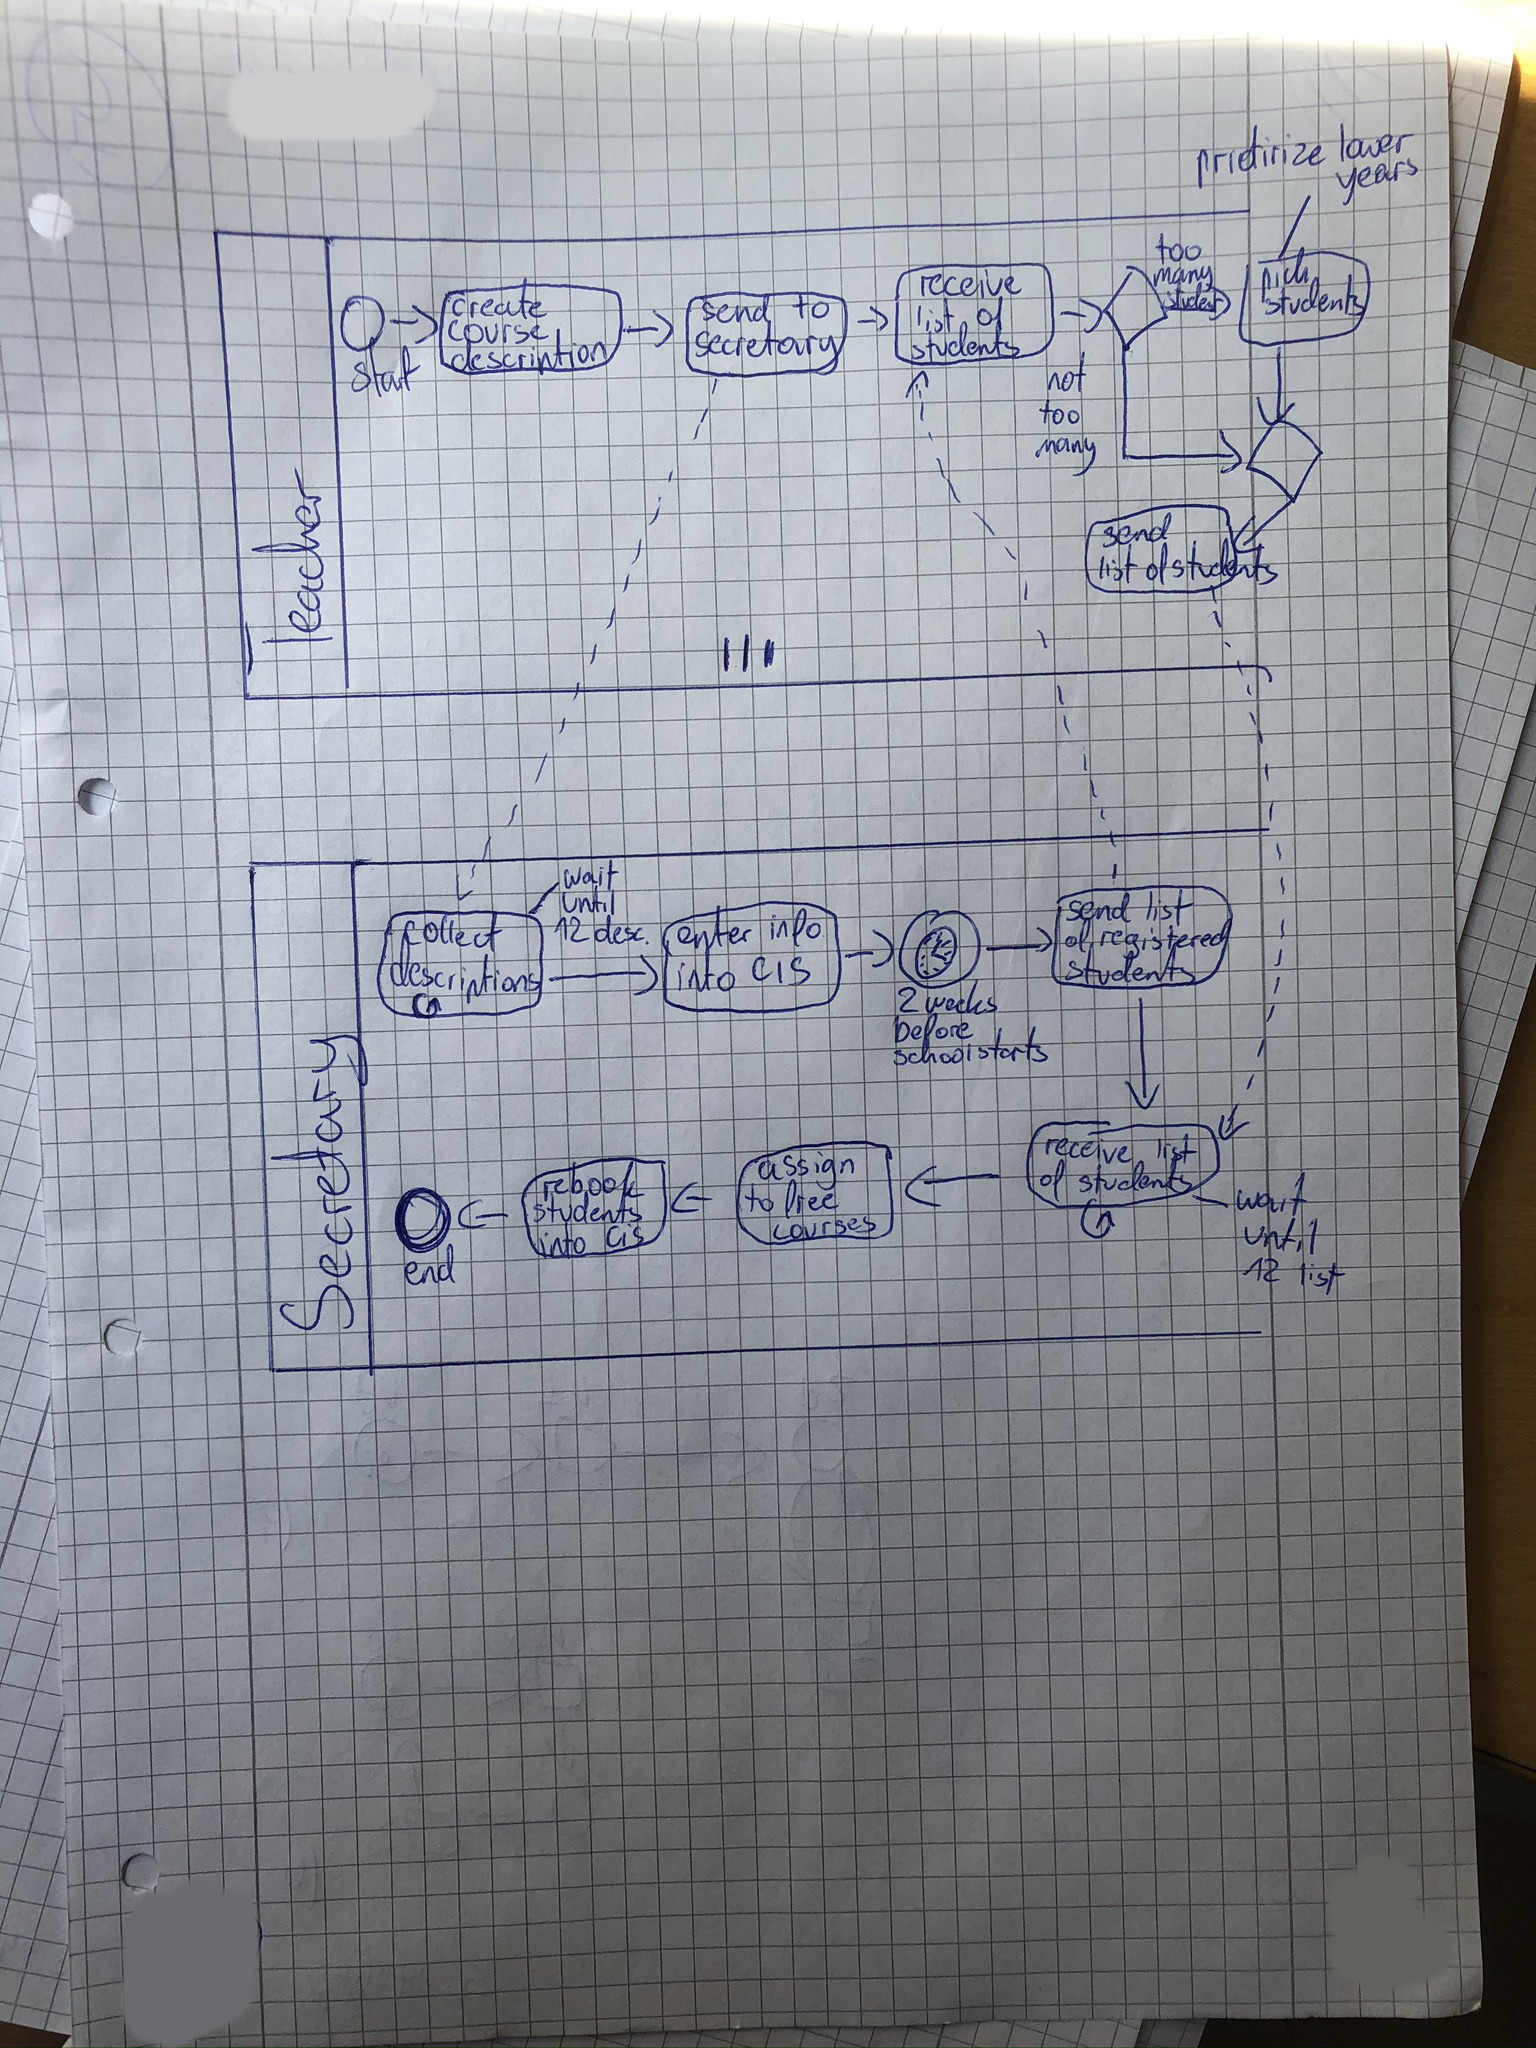 prietirize lower
years
Teacher
Start
create
course
description
send to
secretary
receive
list of
students
too
many
student
pick
students
not
too
many
send
list of students
Secretary
collect
descriptions
wait
until
12 desc.
enter info
into CIS
2 weeks
before
school starts
send list
of registered
students
receive list
of students
wait
until
12 list
assign
to free
courses
rebook
students
into CiS
end